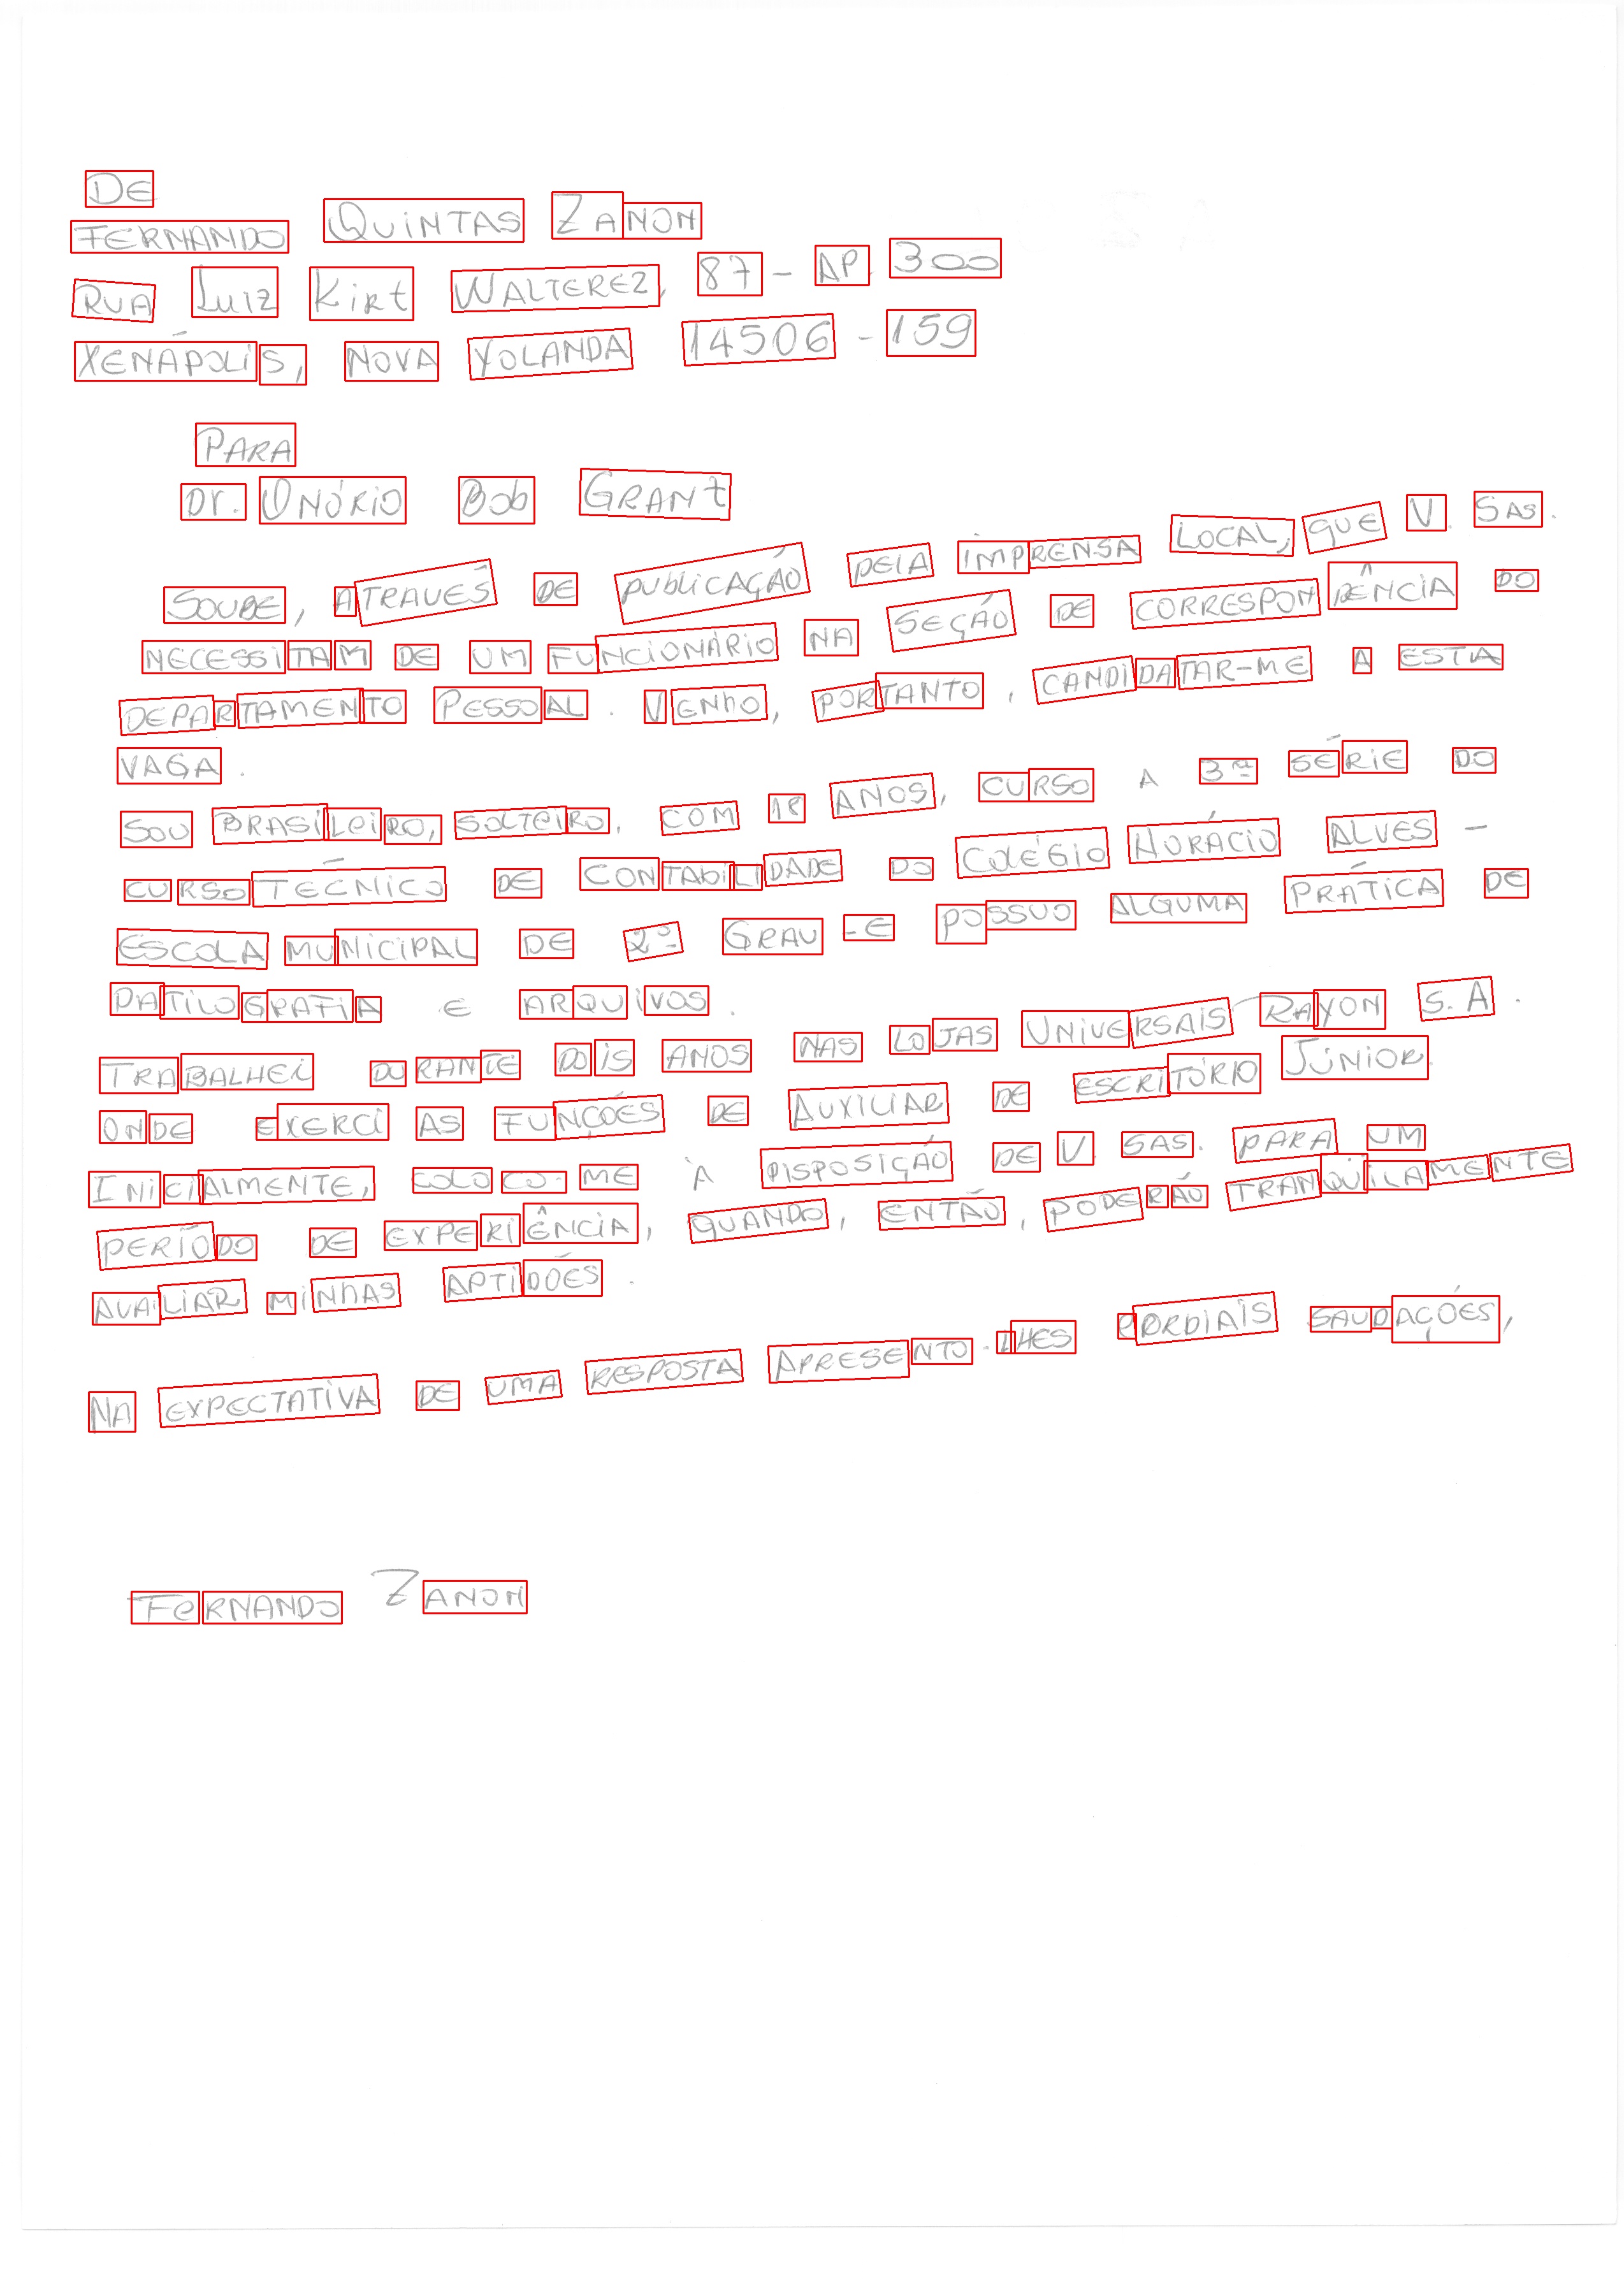 DE
FERNANDO QUINTAS ZANON
RUA LUIZ KIRT WALTEREZ, 87 - AP. 300
XENÁPOLIS, NOVA YOLANDA 14506 - 159
PARA
Dr. ONÓRIO Bob GRANT
SOUBE, ATRAVÉS DE PUBLICAÇÃO PELA IMPRENSA LOCAL, QUE V. SAS.
NECESSITAM DE UM FUNCIONÁRIO NA SEÇÃO DE CORRESPONDÊNCIA DO
DEPARTAMENTO PESSOAL. VENHO, PORTANTO, CANDIDATAR-ME A ESTA
VAGA.
SOU BRASILEIRO, SOLTEIRO, COM 18 ANOS, CURSO A 3ª SÉRIE DO
CURSO TÉCNICO DE CONTABILIDADE DO COLÉGIO HORÁCIO ALVES -
ESCOLA MUNICIPAL DE 2º GRAU - E POSSUO ALGUMA PRÁTICA DE
DATILOGRAFIA E ARQUIVOS.
TRABALHEI DURANTE DOIS ANOS NAS LOJAS UNIVERSAIS RAYON S.A.
ONDE EXERCI AS FUNÇÕES DE AUXILIAR DE ESCRITÓRIO JÚNIOR.
INICIALMENTE, COLOCO-ME À DISPOSIÇÃO DE V. SAS. PARA UM
PERÍODO DE EXPERIÊNCIA, QUANDO, ENTÃO, PODERÃO TRANQUILAMENTE
AVAILIAR MINHAS APTIDÕES.
NA EXPECTATIVA DE UMA RESPOSTA APRESENTO-LHES CORDIAIS SAUDAÇÕES,
FERNANDO ZANON